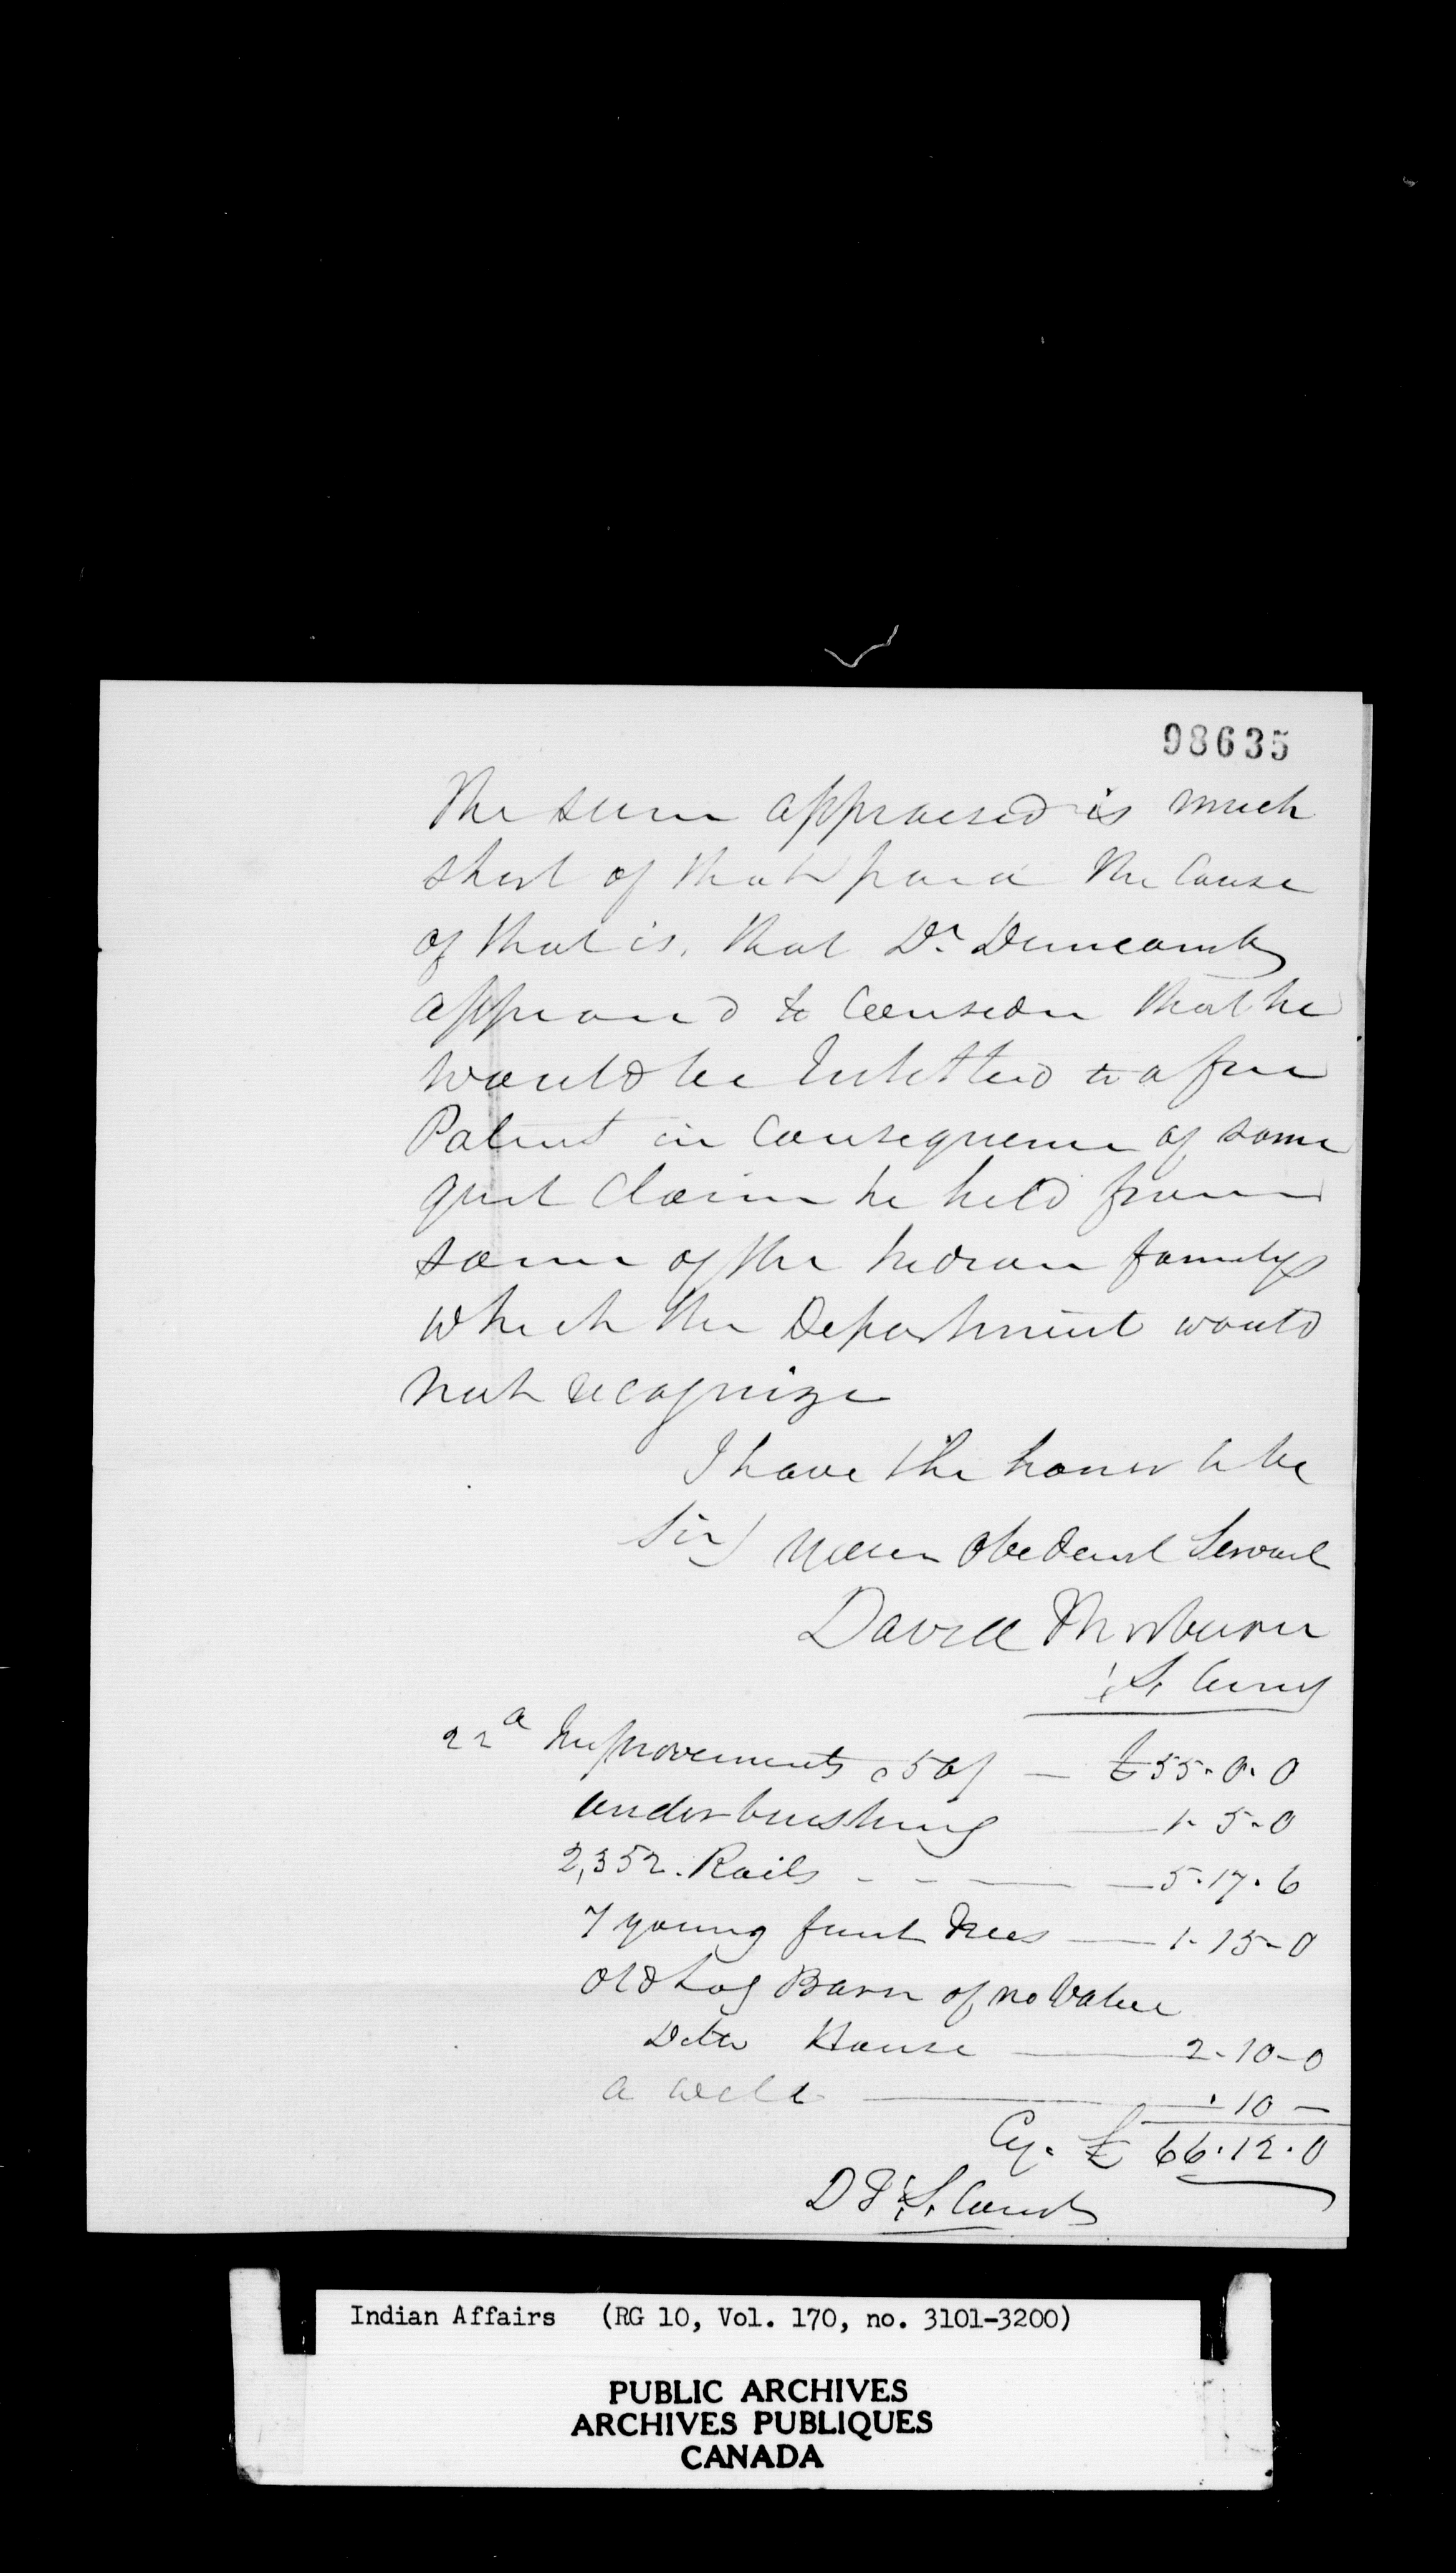 98635
The sum appraised is much
short of that paid The Cause
of that is, that Dr Duncomb
appeared to Consider that he
would be Intittled to a free
Patent in Consequence of some
quit Claim he held from
some of the Indian familys
which the Department would
not recognize
I have the honor to be
Sir your Obedient Servant
David Thorburn
22a Improvements 50/ — £55.0.0
underbrushing — 1.5.0
2,352 Rails - - — 5.17.6
7 young fruit trees — 1.15.0
Old Log Barn of no Value
Ditto House — 2.10.0
a well — .10 —
Cy. £ 66.12.0
D T
Indian Affairs (RG 10, Vol. 170, no. 3101-3200)
PUBLIC ARCHIVES
ARCHIVES PUBLIQUES
CANADA